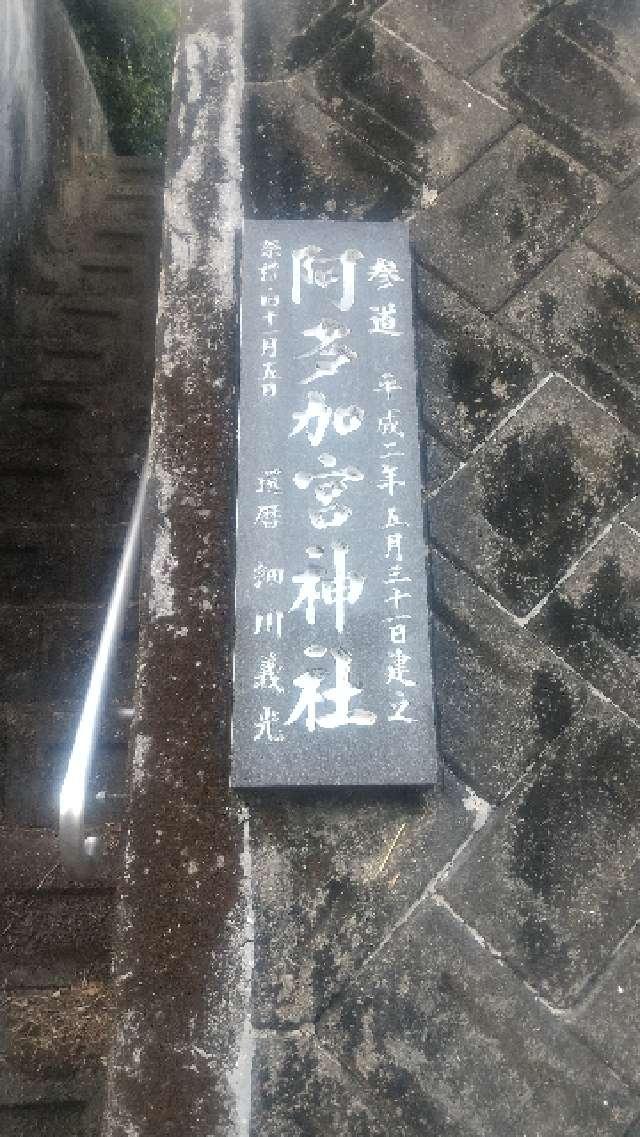 参道 平成二年五月三十一日建之
阿多加宮神社
祭礼 四十一月五日
還暦 細川義光